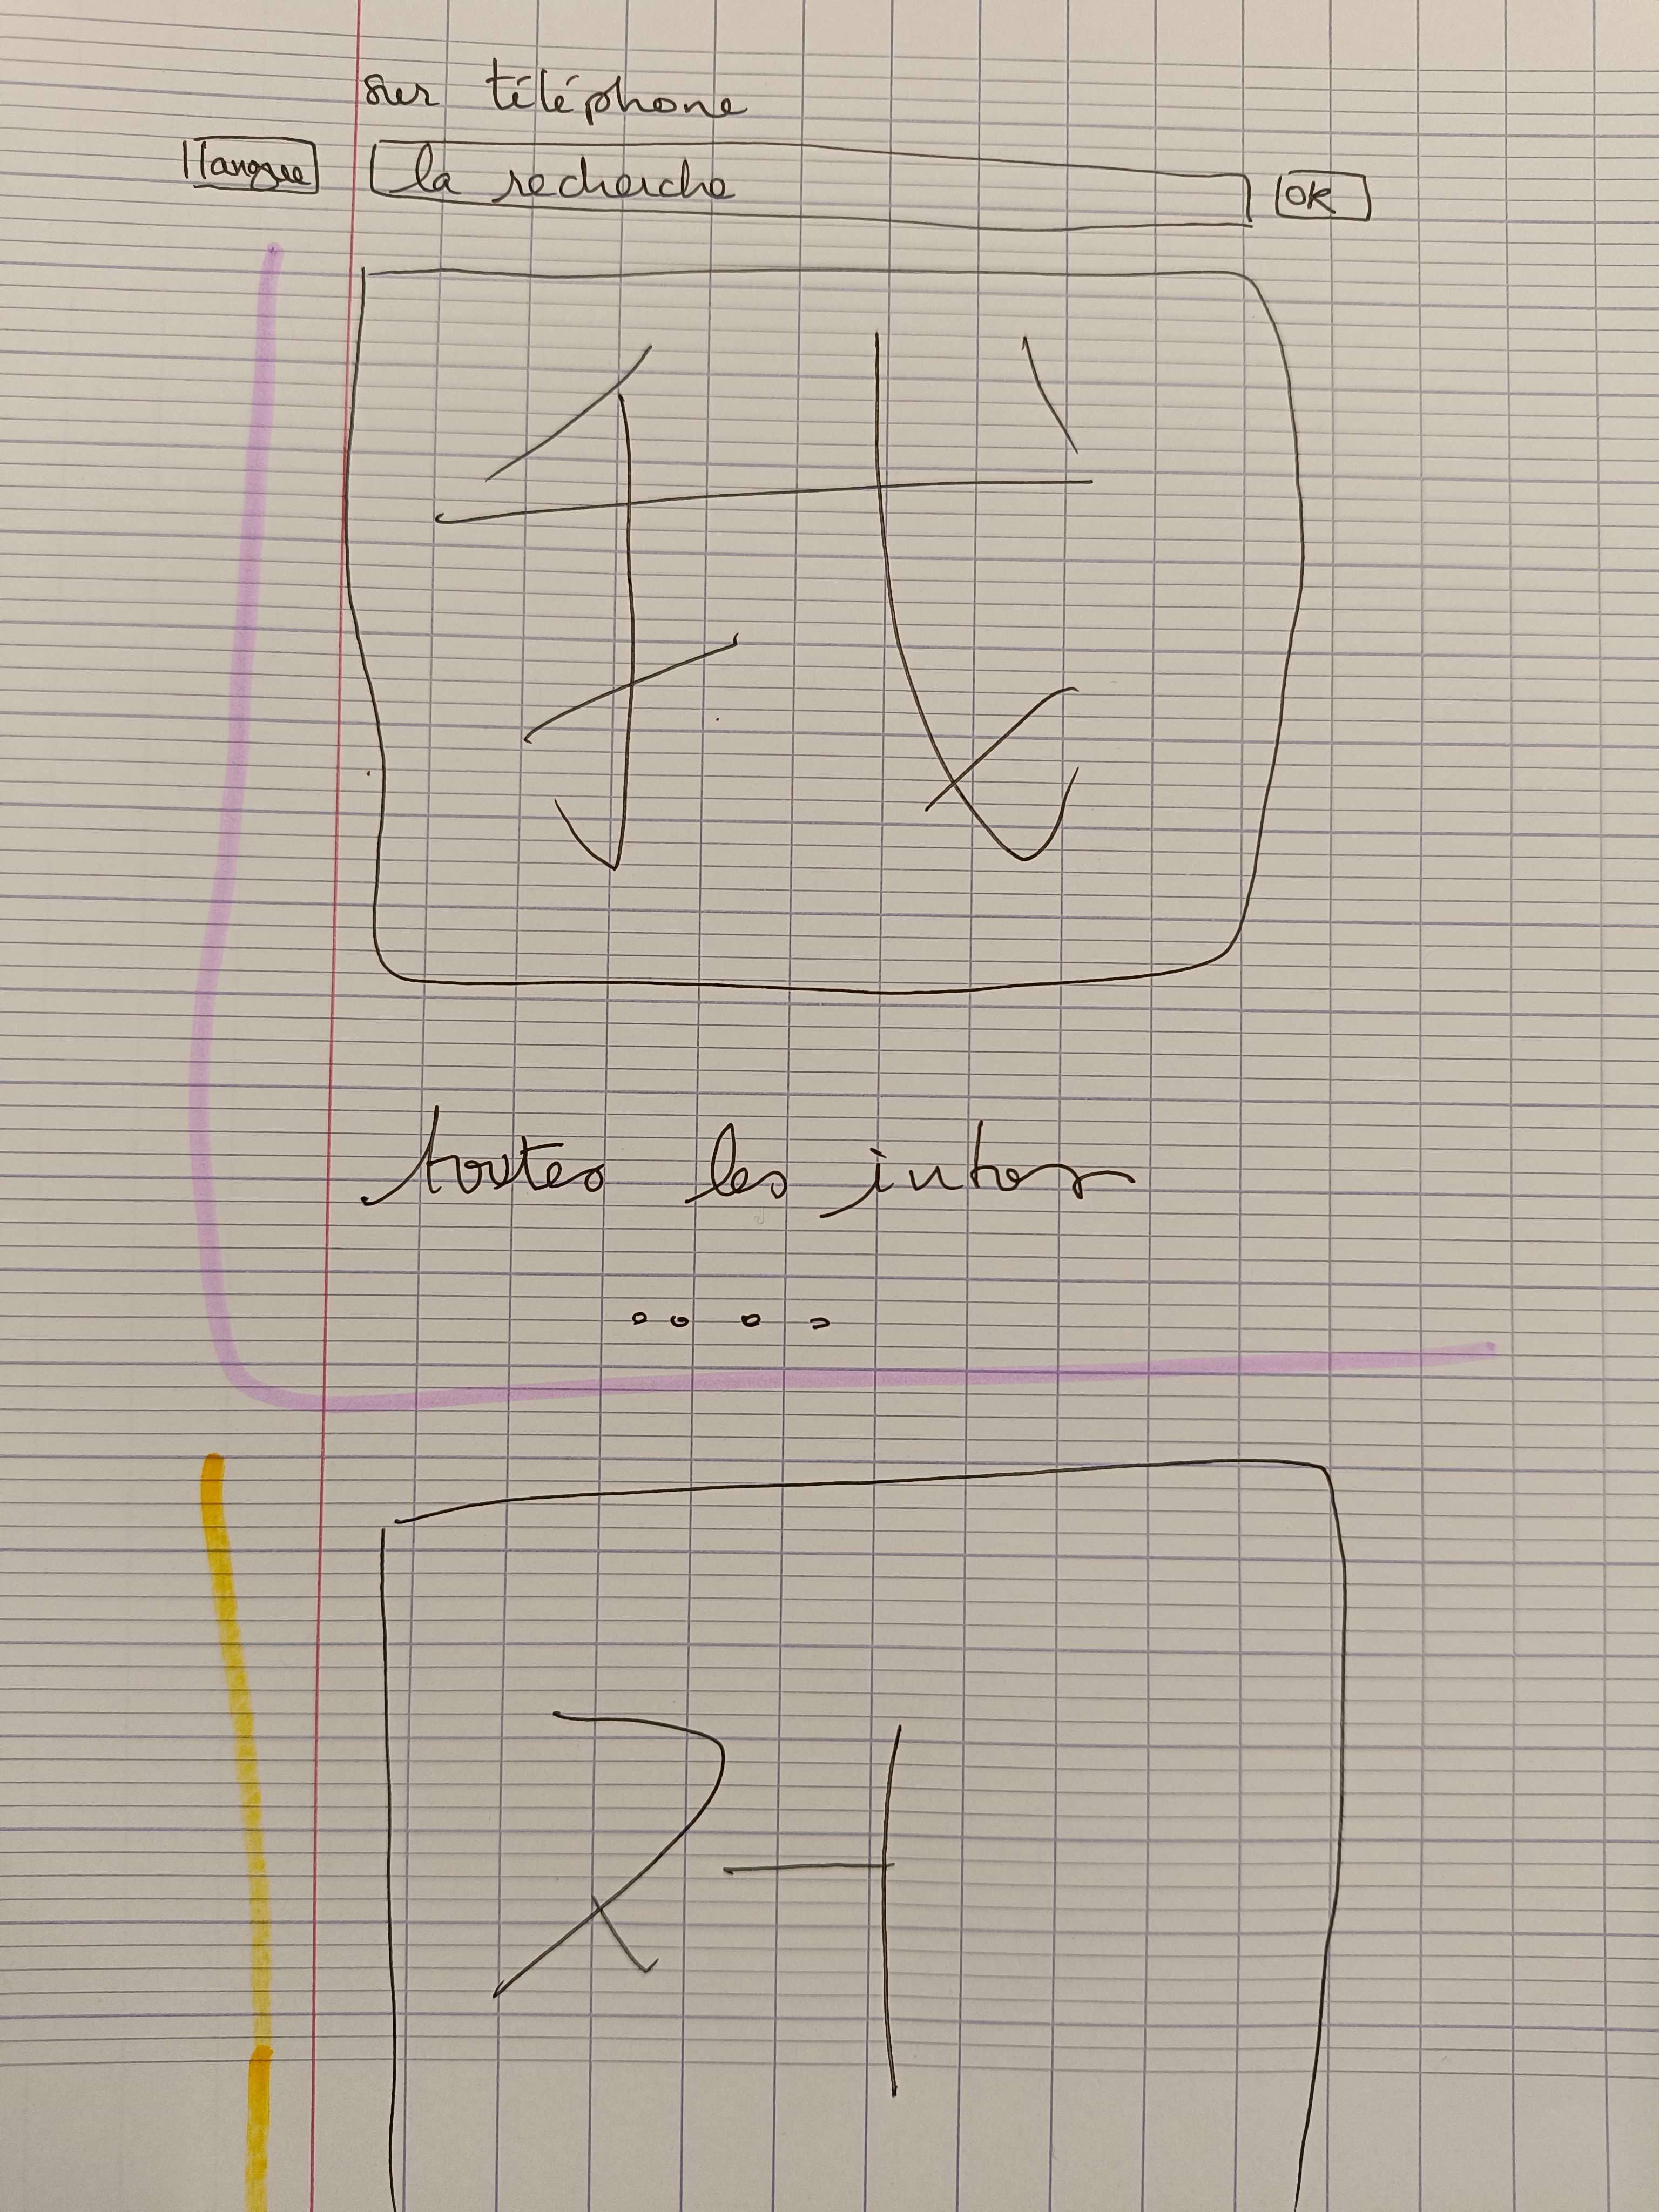 sur téléphone
langue la recherche OK
我
toutes les infos
....
자